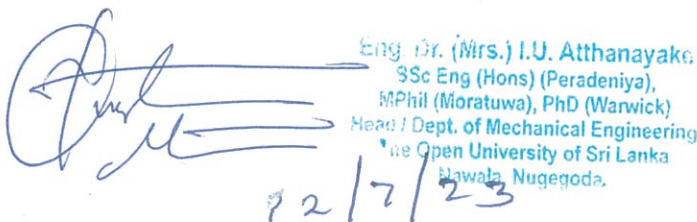 Eng. Dr. (Mrs.) I.U. Atthanayake
BSc Eng (Hons) (Peradeniya),
MPhil (Moratuwa), PhD (Warwick)
Head / Dept. of Mechanical Engineering
The Open University of Sri Lanka
Nawala, Nugegoda.
/7/23